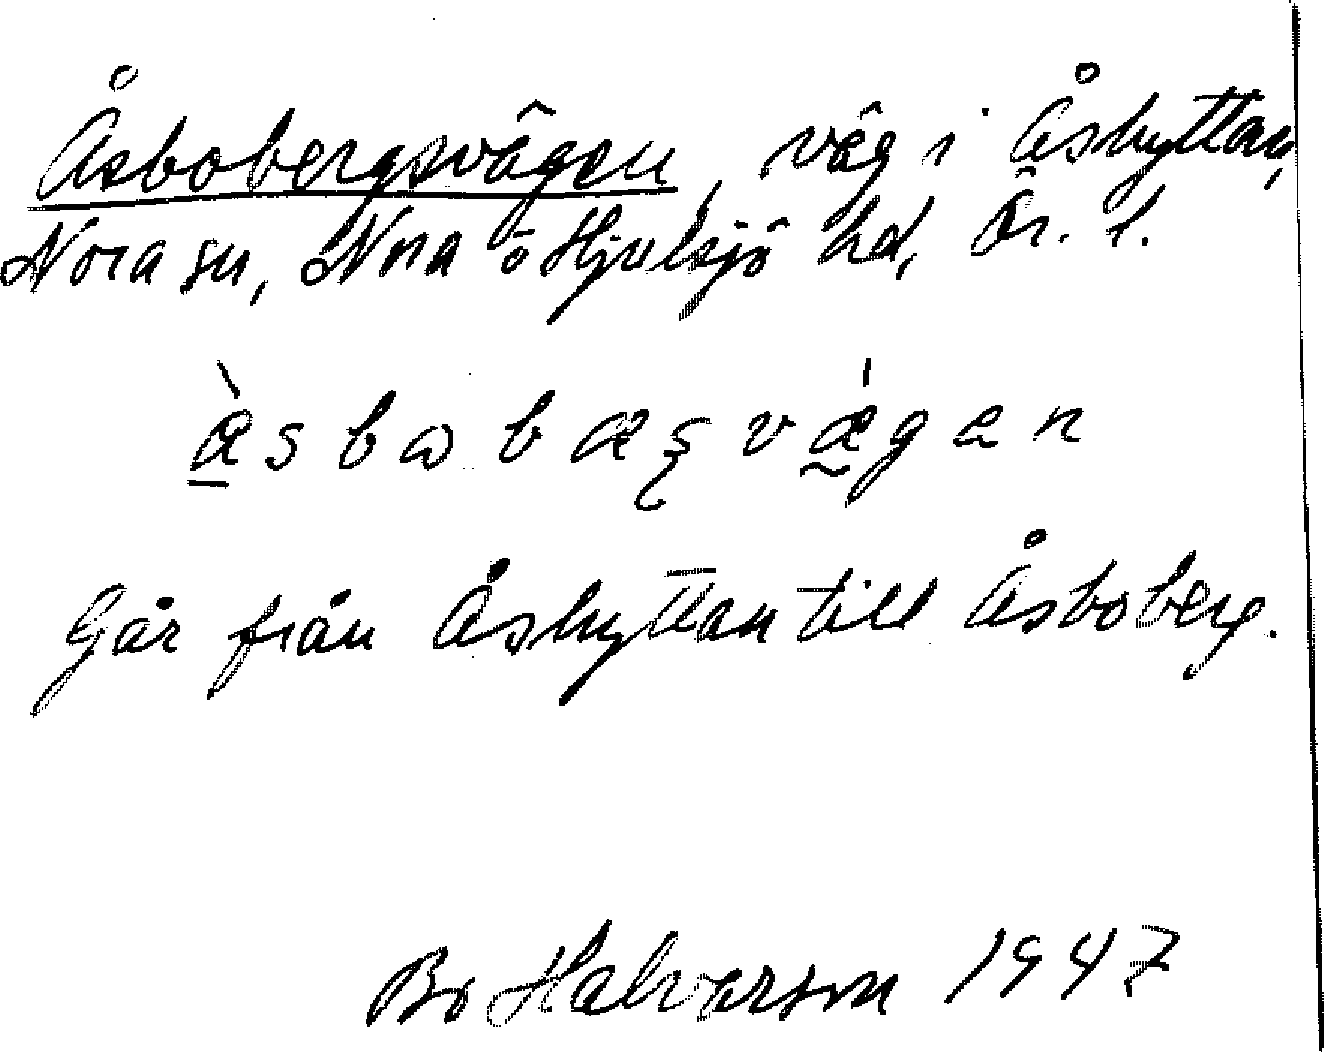 Åsbobergsvägen, väg i Åshyttan,
Nora sn, Nora o Hjulsjö hd, Ör. l.
Går från Åshyttan till Åsboberg.
Bo Halvarson 1947